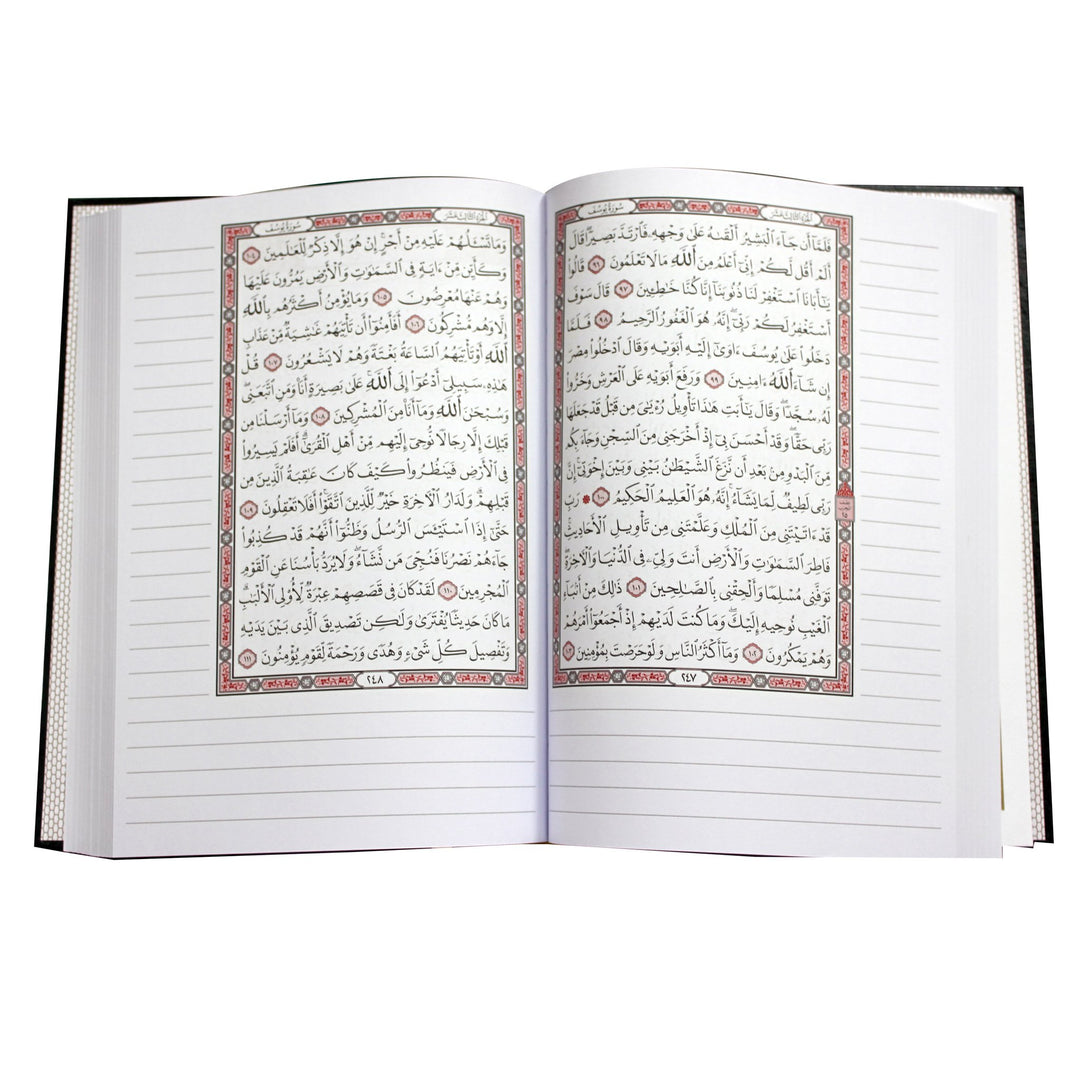 سُورَةُ يُوسُفَ الجُزْءُ الثَّالِثَ عَشَرَ
فَلَمَّآ أَن جَآءَ ٱلْبَشِيرُ أَلْقَىٰهُ عَلَىٰ وَجْهِهِۦ فَٱرْتَدَّ بَصِيرًا ۖ قَالَ
أَلَمْ أَقُل لَّكُمْ إِنِّىٓ أَعْلَمُ مِنَ ٱللَّهِ مَا لَا تَعْلَمُونَ ٩٦ قَالُوا۟
يَـٰٓأَبَانَا ٱسْتَغْفِرْ لَنَا ذُنُوبَنَآ إِنَّا كُنَّا خَـٰطِـِٔينَ ٩٧ قَالَ سَوْفَ
أَسْتَغْفِرُ لَكُمْ رَبِّىٓ ۖ إِنَّهُۥ هُوَ ٱلْغَفُورُ ٱلرَّحِيمُ ٩٨ فَلَمَّا
دَخَلُوا۟ عَلَىٰ يُوسُفَ ءَاوَىٰٓ إِلَيْهِ أَبَوَيْهِ وَقَالَ ٱدْخُلُوا۟ مِصْرَ
إِن شَآءَ ٱللَّهُ ءَامِنِينَ ٩٩ وَرَفَعَ أَبَوَيْهِ عَلَى ٱلْعَرْشِ وَخَرُّوا۟
لَهُۥ سُجَّدًا ۖ وَقَالَ يَـٰٓأَبَتِ هَـٰذَا تَأْوِيلُ رُءْيَـٰىَ مِن قَبْلُ قَدْ جَعَلَهَا
رَبِّى حَقًّا ۖ وَقَدْ أَحْسَنَ بِىٓ إِذْ أَخْرَجَنِى مِنَ ٱلسِّجْنِ وَجَآءَ بِكُم
مِّنَ ٱلْبَدْوِ مِنۢ بَعْدِ أَن نَّزَغَ ٱلشَّيْطَـٰنُ بَيْنِى وَبَيْنَ إِخْوَتِىٓ ۚ إِنَّ
رَبِّى لَطِيفٌ لِّمَا يَشَآءُ ۚ إِنَّهُۥ هُوَ ٱلْعَلِيمُ ٱلْحَكِيمُ ١٠٠ ۞ رَبِّ
قَدْ ءَاتَيْتَنِى مِنَ ٱلْمُلْكِ وَعَلَّمْتَنِى مِن تَأْوِيلِ ٱلْأَحَادِيثِ ۚ
فَاطِرَ ٱلسَّمَـٰوَٰتِ وَٱلْأَرْضِ أَنتَ وَلِىِّۦ فِى ٱلدُّنْيَا وَٱلْـَٔاخِرَةِ ۖ
تَوَفَّنِى مُسْلِمًا وَأَلْحِقْنِى بِٱلصَّـٰلِحِينَ ١٠١ ذَٰلِكَ مِنْ أَنۢبَآءِ
ٱلْغَيْبِ نُوحِيهِ إِلَيْكَ ۖ وَمَا كُنتَ لَدَيْهِمْ إِذْ أَجْمَعُوٓا۟ أَمْرَهُمْ
وَهُمْ يَمْكُرُونَ ١٠٢ وَمَآ أَكْثَرُ ٱلنَّاسِ وَلَوْ حَرَصْتَ بِمُؤْمِنِينَ ١٠٣
٢٤٧
سُورَةُ يُوسُفَ الجُزْءُ الثَّالِثَ عَشَرَ
وَمَا تَسْـَٔلُهُمْ عَلَيْهِ مِنْ أَجْرٍ ۚ إِنْ هُوَ إِلَّا ذِكْرٌ لِّلْعَـٰلَمِينَ ١٠٤
وَكَأَيِّن مِّنْ ءَايَةٍ فِى ٱلسَّمَـٰوَٰتِ وَٱلْأَرْضِ يَمُرُّونَ عَلَيْهَا
وَهُمْ عَنْهَا مُعْرِضُونَ ١٠٥ وَمَا يُؤْمِنُ أَكْثَرُهُم بِٱللَّهِ
إِلَّا وَهُم مُّشْرِكُونَ ١٠٦ أَفَأَمِنُوٓا۟ أَن تَأْتِيَهُمْ غَـٰشِيَةٌ مِّنْ عَذَابِ
ٱللَّهِ أَوْ تَأْتِيَهُمُ ٱلسَّاعَةُ بَغْتَةً وَهُمْ لَا يَشْعُرُونَ ١٠٧ قُلْ
هَـٰذِهِۦ سَبِيلِىٓ أَدْعُوٓا۟ إِلَى ٱللَّهِ ۚ عَلَىٰ بَصِيرَةٍ أَنَا۠ وَمَنِ ٱتَّبَعَنِى ۖ
وَسُبْحَـٰنَ ٱللَّهِ وَمَآ أَنَا۠ مِنَ ٱلْمُشْرِكِينَ ١٠٨ وَمَآ أَرْسَلْنَا مِن
قَبْلِكَ إِلَّا رِجَالًا نُّوحِىٓ إِلَيْهِم مِّنْ أَهْلِ ٱلْقُرَىٰٓ ۗ أَفَلَمْ يَسِيرُوا۟
فِى ٱلْأَرْضِ فَيَنظُرُوا۟ كَيْفَ كَانَ عَـٰقِبَةُ ٱلَّذِينَ مِن
قَبْلِهِمْ ۗ وَلَدَارُ ٱلْـَٔاخِرَةِ خَيْرٌ لِّلَّذِينَ ٱتَّقَوْا۟ ۗ أَفَلَا تَعْقِلُونَ ١٠٩
حَتَّىٰٓ إِذَا ٱسْتَيْـَٔسَ ٱلرُّسُلُ وَظَنُّوٓا۟ أَنَّهُمْ قَدْ كُذِبُوا۟
جَآءَهُمْ نَصْرُنَا فَنُجِّىَ مَن نَّشَآءُ ۖ وَلَا يُرَدُّ بَأْسُنَا عَنِ ٱلْقَوْمِ
ٱلْمُجْرِمِينَ ١١٠ لَقَدْ كَانَ فِى قَصَصِهِمْ عِبْرَةٌ لِّأُو۟لِى ٱلْأَلْبَـٰبِ ۗ
مَا كَانَ حَدِيثًا يُفْتَرَىٰ وَلَـٰكِن تَصْدِيقَ ٱلَّذِى بَيْنَ يَدَيْهِ
وَتَفْصِيلَ كُلِّ شَىْءٍ وَهُدًى وَرَحْمَةً لِّقَوْمٍ يُؤْمِنُونَ ١١١
٢٤٨